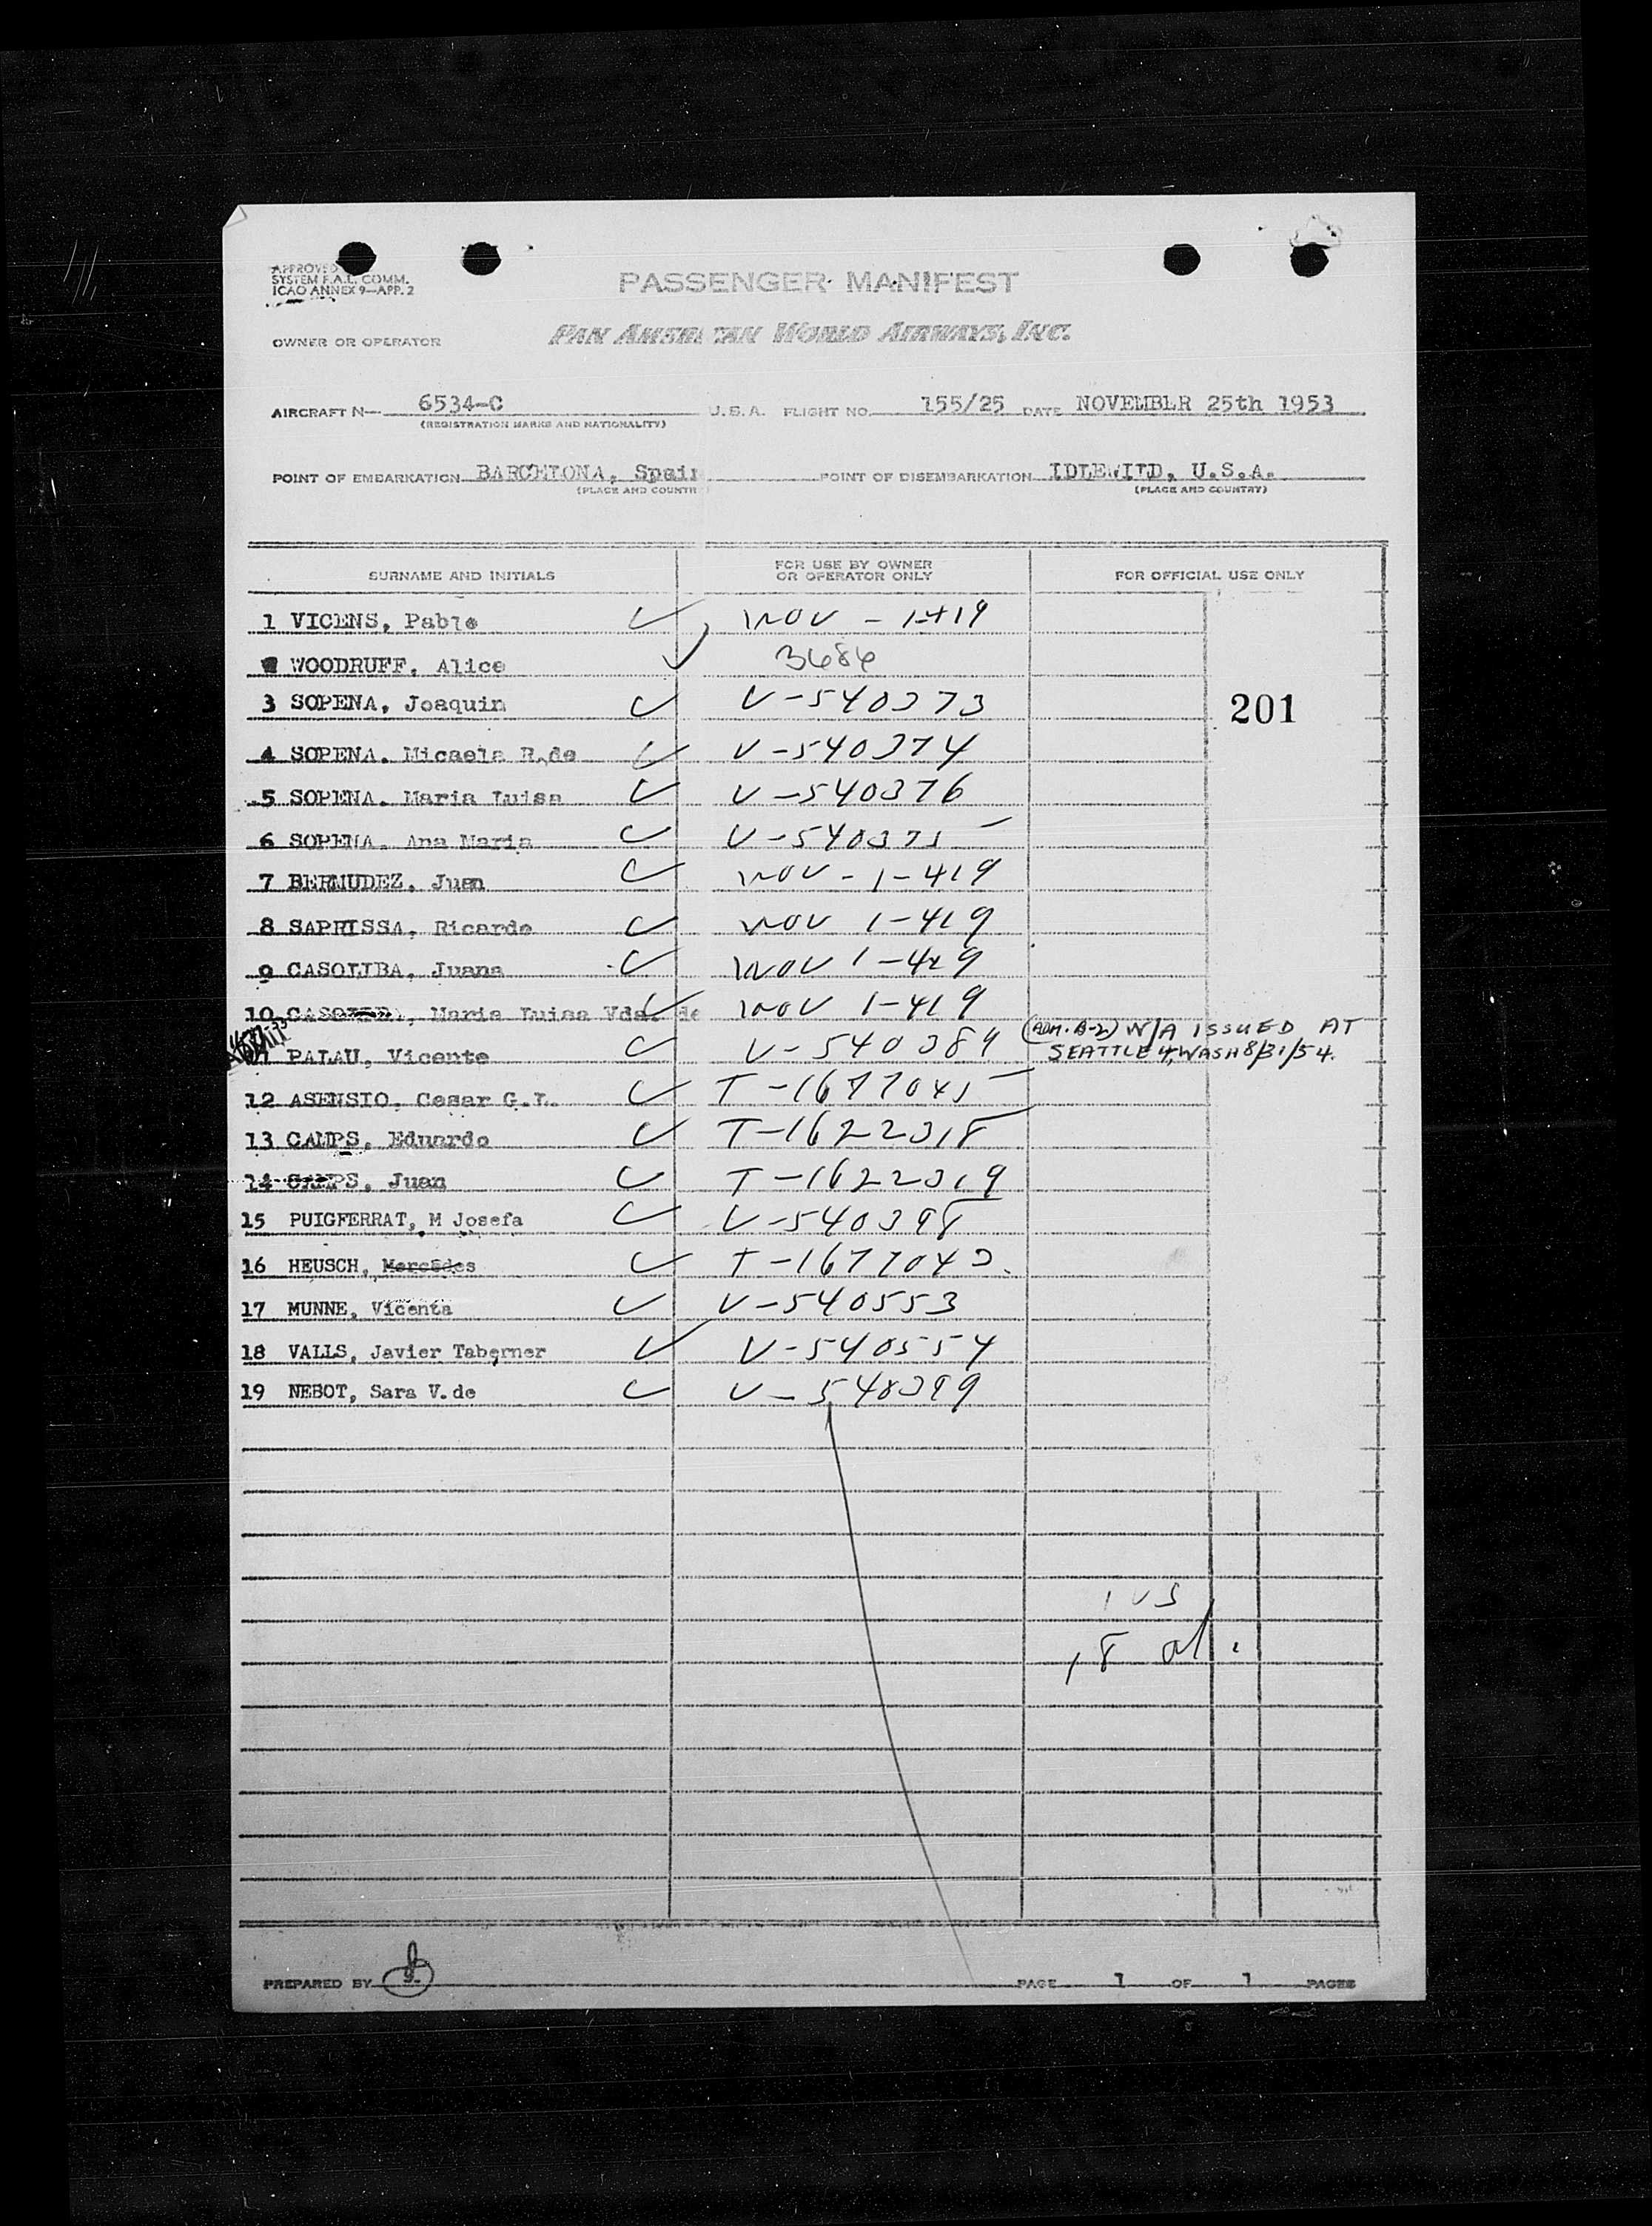 APPROVED
SYSTEM F.A.L. COMM.
ICAO ANNEX 9—APP. 2
PASSENGER MANIFEST
OWNER OR OPERATOR PAN AMERICAN WORLD AIRWAYS, INC.
AIRCRAFT N— 6534-C U.S.A. FLIGHT NO. 155/25 DATE NOVEMBER 25th 1953
(REGISTRATION MARKS AND NATIONALITY)
POINT OF EMBARKATION BARCELONA, Spain POINT OF DISEMBARKATION IDLEWILD, U.S.A.
(PLACE AND COUNTRY) (PLACE AND COUNTRY)
SURNAME AND INITIALS FOR USE BY OWNER OR OPERATOR ONLY FOR OFFICIAL USE ONLY
1 VICENS, Pablo NOV - 1-419
WOODRUFF, Alice 3686
3 SOPENA, Joaquin V-540373
201
4 SOPENA. Micaela R.de V-540374
5 SOPENA. Maria Luisa V-540376
6 SOPENA. Ana Maria V-540375
7 BERMUDEZ. Juan NOV - 1-419
8 SAPRISSA, Ricardo NOV 1-419
9 CASOLIBA, Juana NOV 1-429
10 Maria Luisa Vda. de NOV 1-419
PALAU, Vicente V-540389 (ADM. B-2) W/A ISSUED AT
SEATTLE 4, WASH 8/31/54.
12 ASENSIO, Cesar G.L. T-1677045
13 CAMPS, Eduardo T-1622318
14 CAMPS, Juan T-1622319
15 PUIGFERRAT, M Josefa V-540398
16 HEUSCH, Mercedes T-1677043
17 MUNNE, Vicenta V-540553
18 VALLS, Javier Taberner V-540554
19 NEBOT, Sara V.de V-548399
1 US
18 al.
PREPARED BY PAGE 1 OF 1 PAGES